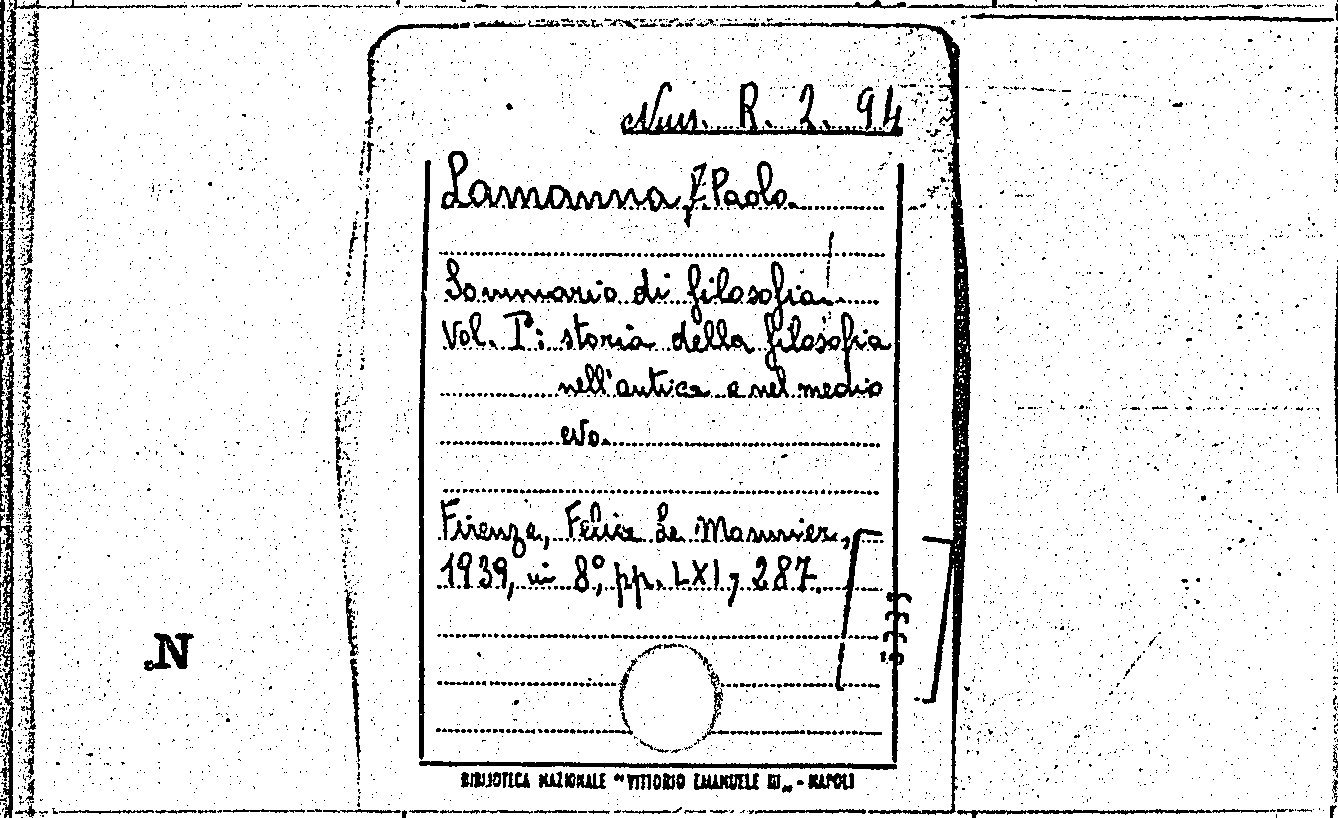 Nuv. R. 2. 94
Lamanna E. Paolo.
Sommario di filosofia.
Vol. I°: storia della filosofia
nell'antico e nel medio
evo.
Firenze, Felice Le Monnier,
1939, in 8°, pp. LXI, 287.
N.
BIBLIOTECA NAZIONALE "VITTORIO EMANUELE III„ - NAPOLI